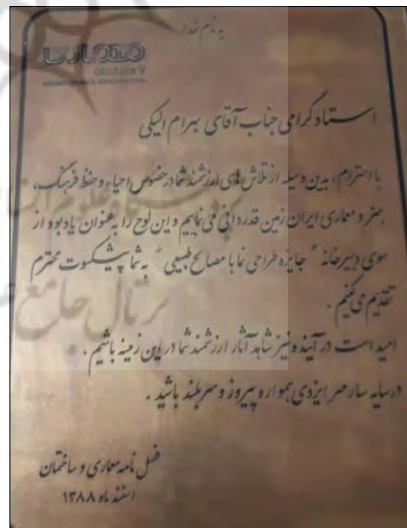 به نام خدا
معماری
و ساختمان
ARCHITECTURE & CONSTRUCTION
استاد گرامی جناب آقای بهرام الیکی
با احترام، بدین وسیله از تلاش های ارزشمند شما در خصوص احیاء و حفظ فرهنگ،
هنر و معماری ایران زمین قدردانی می نماییم و این لوح را به عنوان یادبود از
سوی دبیرخانه "جایزه طراحی نما با مصالح طبیعی" به شما پیشکسوت محترم
تقدیم می کنیم.
امید است در آینده نیز شاهد آثار ارزشمند شما در این زمینه باشیم.
در سایه سار مهر ایزدی همواره پیروز و سربلند باشید.
فصل نامه معماری و ساختمان
اسفند ماه ۱۳۸۸